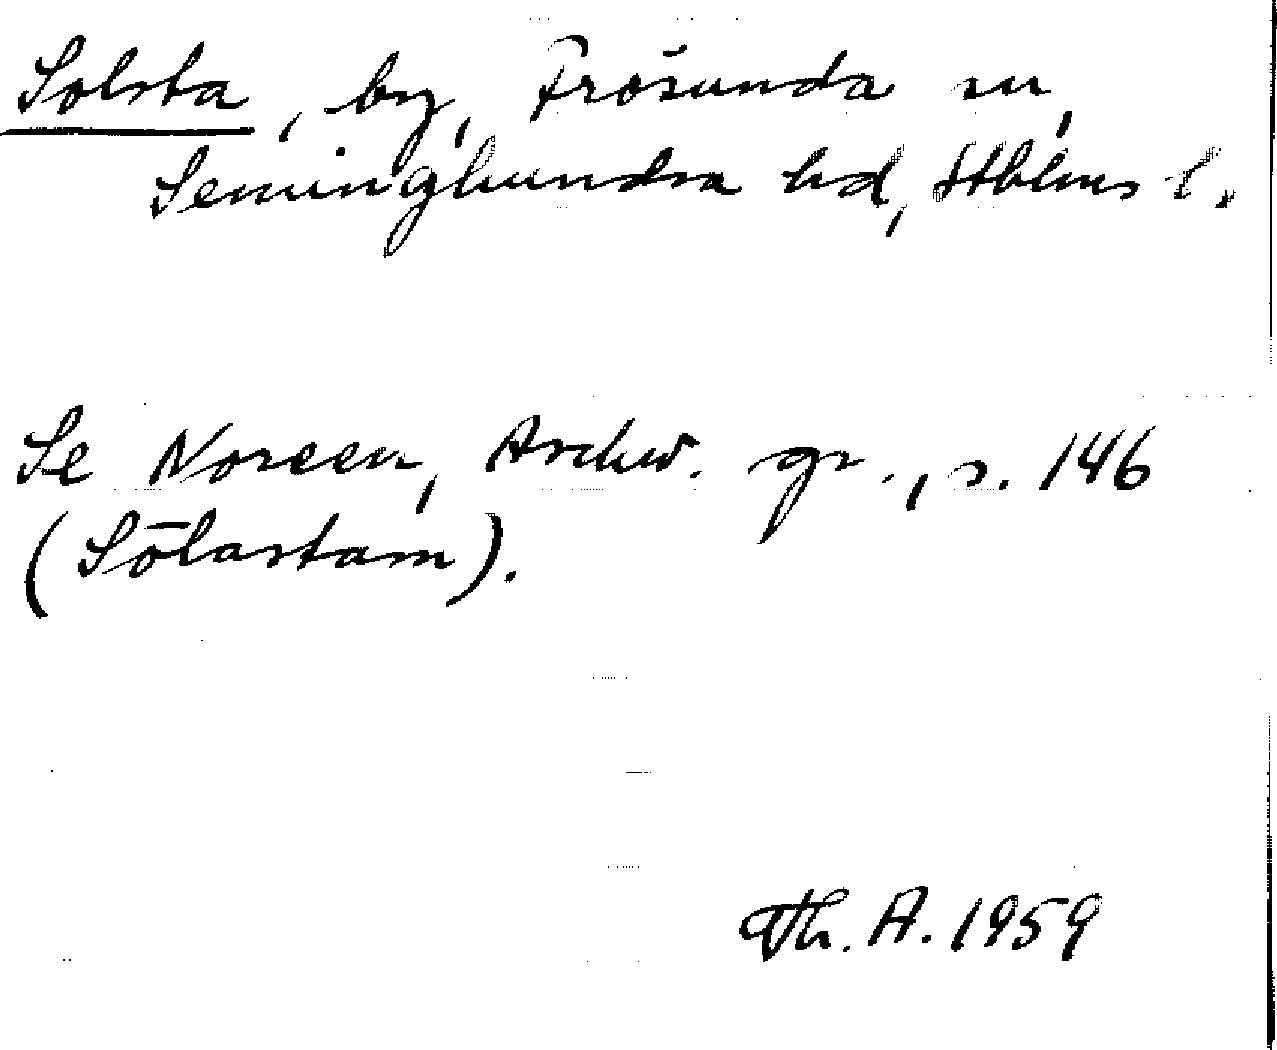 Solsta, by, Frösunda sn,
Seminghundra hd, Sthlms l.
Se Noreen, Aschw. gr., s. 146
(Sōlastam).
Th. A. 1959